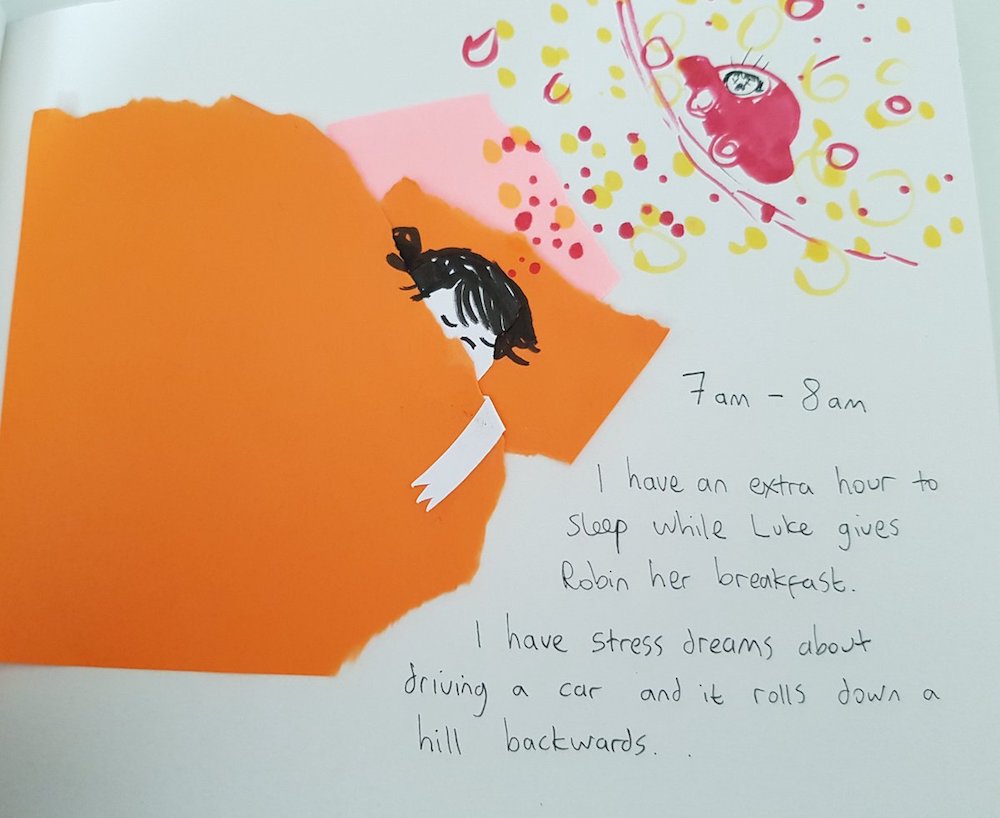 7am - 8am
I have an extra hour to
sleep while Luke gives
Robin her breakfast.
I have stress dreams about
driving a car and it rolls down a
hill backwards. .